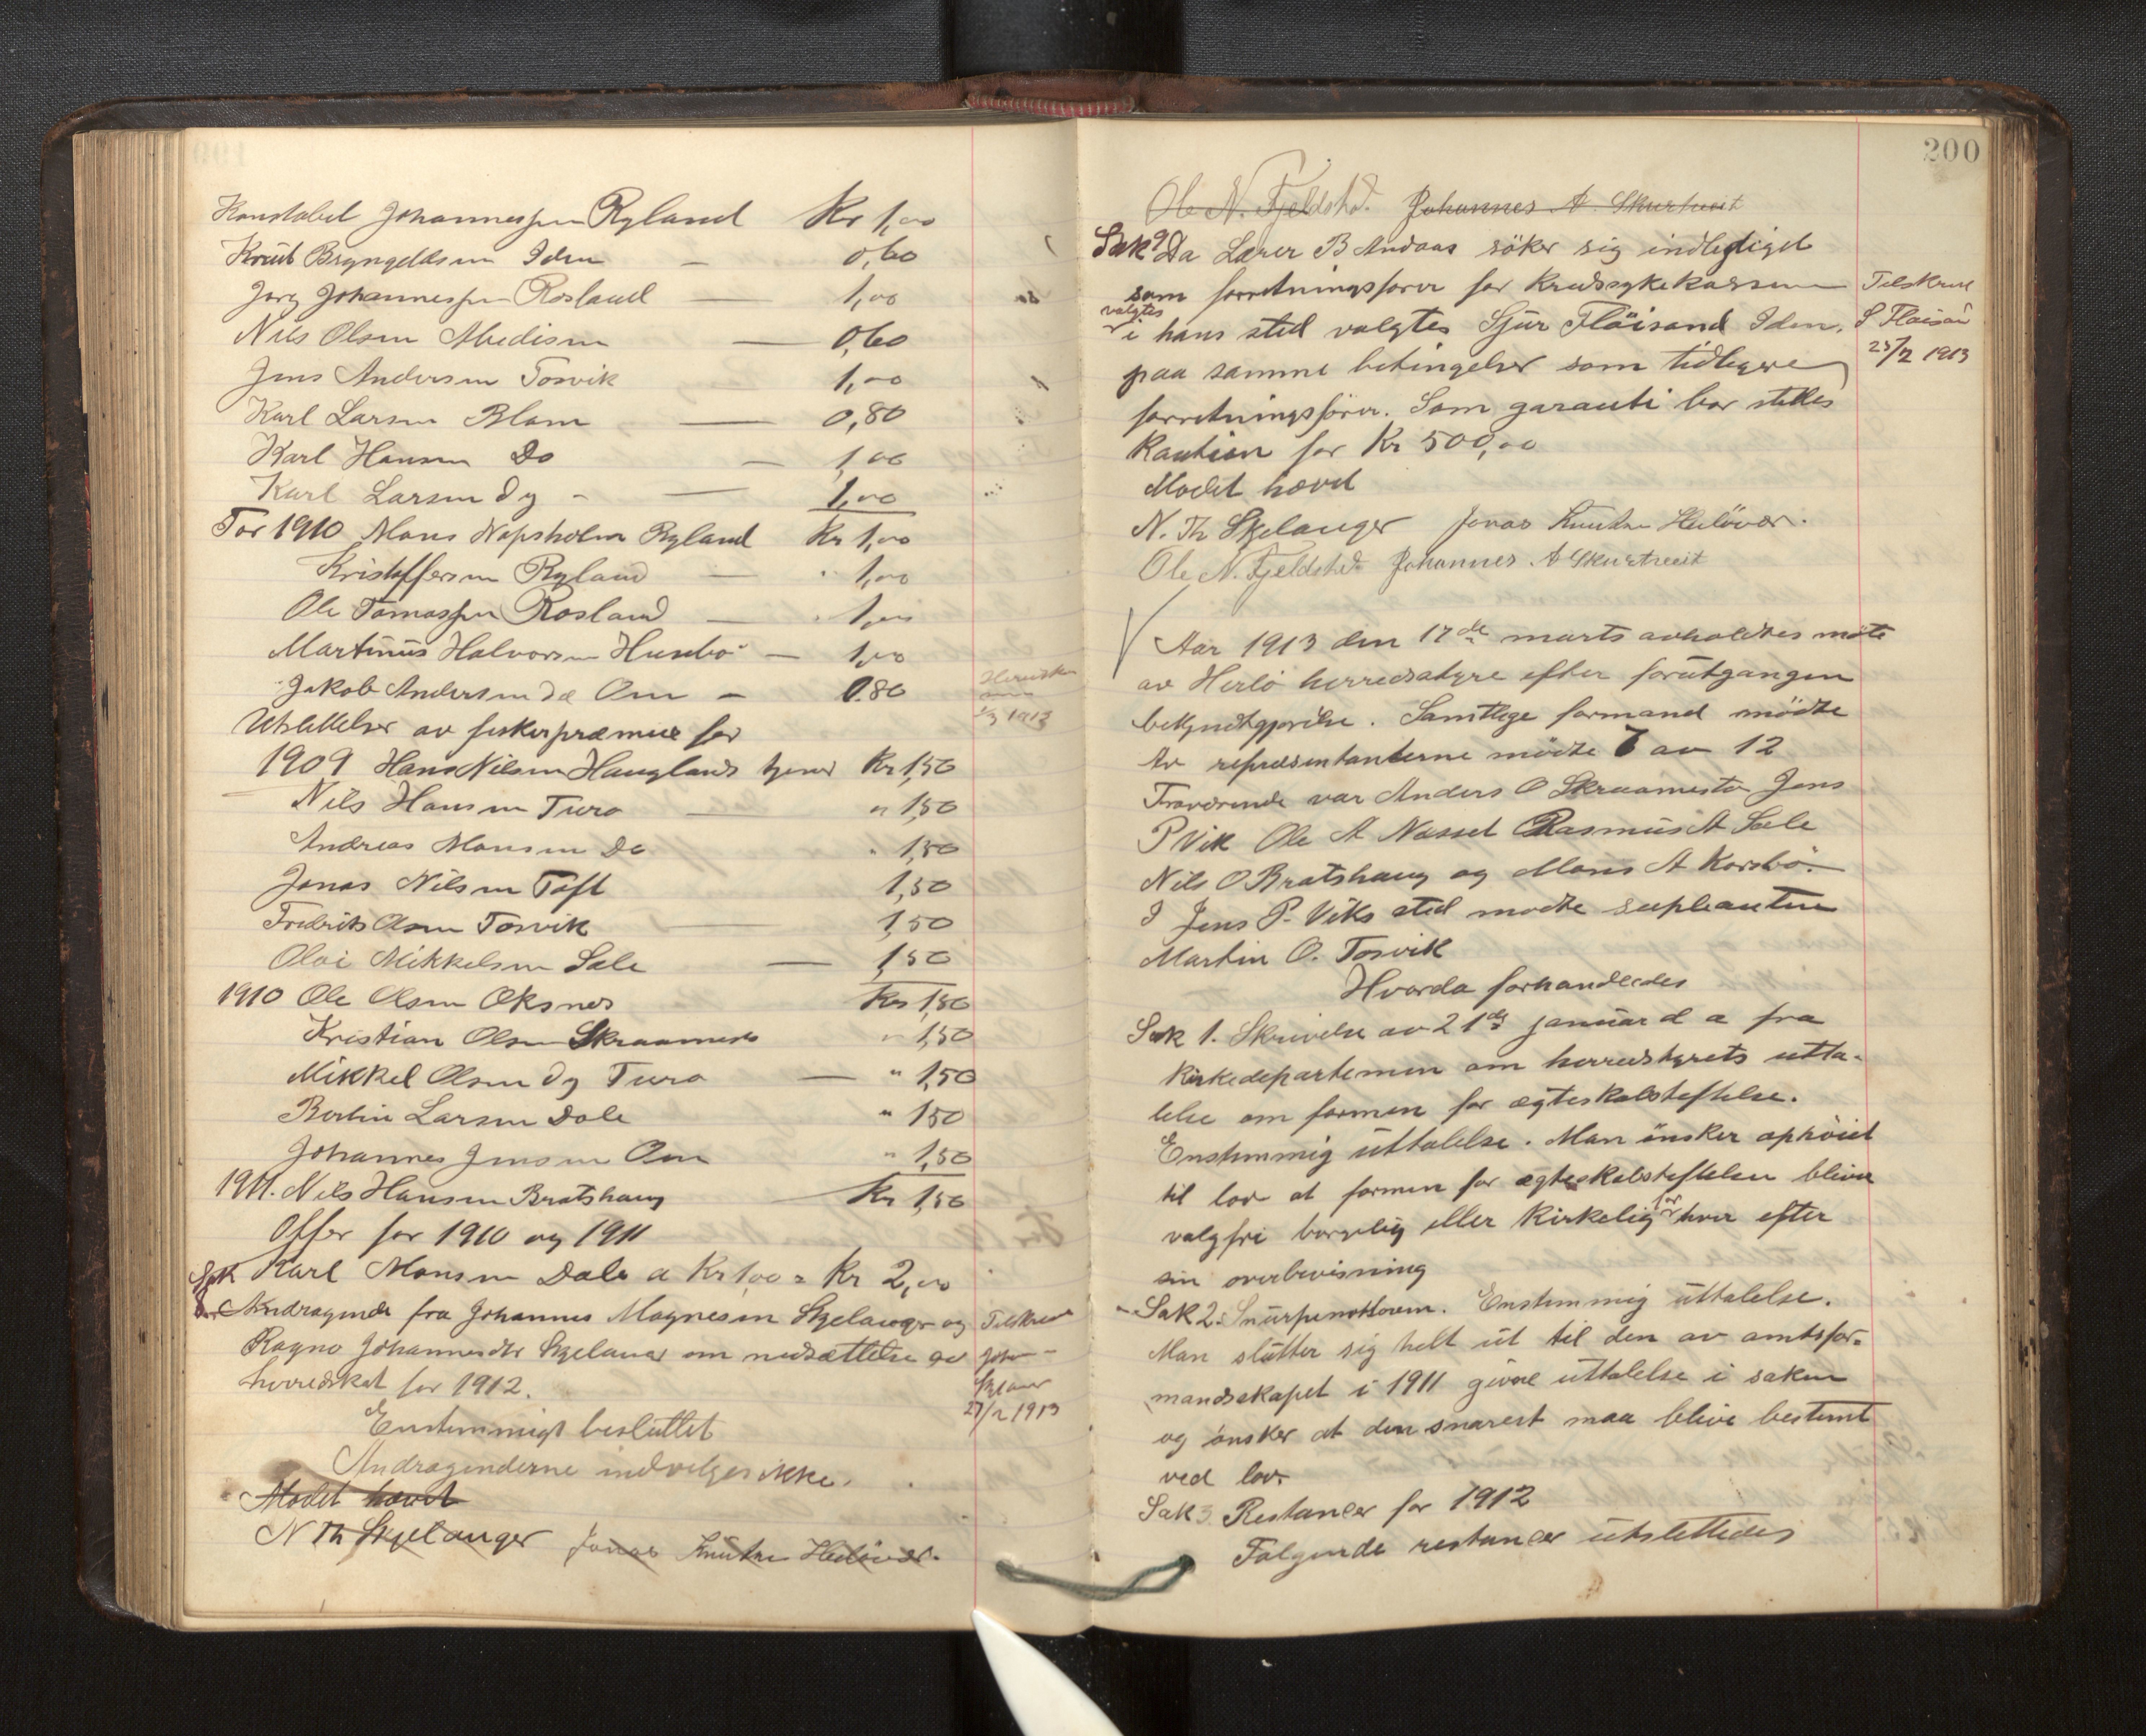 Konstabel Johannessen Ryland Kr 1,00
Knut Bryngeldsen Iden — 0,60
Jørg Johannessen Rosland — 1,00
Nils Olsen Midisen — 0,60
Jens Andersen Tosvik 1,00
Karl Larsen Blom — 0,80
Karl Hansen Do — 1,00
Karl Larsen d y - — 1,00
For 1910 Mons Napsholm Ryland Kr 1,00
Kristoffersen Ryland — " 1,00
Ole Tomassen Rosland — " 1,00
Martinus Halvorsen Husebø — 1,00
Jakob Andersen d æ Om — 0.80
1/3 1913
Utslettelser av fiskerpræmie for
1909 Hans Nilsen Hauglands tjener Kr 1,50
Nils Hansen Turø — " 1,50
Andreas Monsen Do " 1,50
Jonas Nilsen Toft 1,50
Fredrik Olsen Tosvik — 1,50
Olai Mikkelsen Sæle — 1,50
1910 Ole Olsen Oksnes Kr 1,50
Kristian Olsen Skraamestø " 1,50
Mikkel Olsen d y Turø — " 1,50
Bertin Larsen Dale " 1,50
Johannes Jensen Om " 1,50
1911. Nils Hansen Bratshaug — Kr 1,50
Offer for 1910 og 1911
Karl Monsen Dale a Kr 1,00 = Kr 2,00
Sak 8 Andragende fra Johannes Magnesen Skjelanger og
Ragna Johannesdtr Skjelanger om nedsættelse av
herredskat for 1912.
Tilskrevet
27/2 1913
Enstemmigt besluttet
Andragenderne indvilges ikke.
Mødet hævet
N Th Skjelanger Jonas Knutsen Herløvær.
200
Ole N. Fjeldstad. Johannes A. Skurtveit
Sak 9 Da Lærer B Andaas søker sig indledigel
som forretningsfører for Kredssykekassen
valgtes
i hans sted valgtes Sjur Fløisand Iden.
paa samme betingelser som tidligere
forretningsfører. Som garanti bør stilles
Kaution for Kr 500,00
Tilskrevet
S Fløisan
25/2 1913
Mødet hævet
N. Th Skjelanger Jonas Knutsen Herløvær.
Ole N. Fjeldstad Johannes A Skurtveit
Aar 1913 den 17de marts avholdtes møte
av Herlø herredsstyre efter forutgangen
bekjendtgjørelse. Samtlige formænd mødte
Av repræsentanterne mødte 7 av 12
Fraværende var Anders O Skraamestø Jens
P Vik Ole A Nasset Rasmus A Sæle
Nils O Bratshaug og Mons A Korsbø.
I Jens P. Viks sted mødte supleanten
Martin O. Tosvik
Hvorda forhandledes
Sak 1. Skrivelse av 21de januar d a fra
Kirkedepartemen om herredstyrets utta-
lelse om formen for ægteskabstiftelse.
Enstemmig uttalelse. Man ønsker ophøiet
til lov at formen for ægteskabstiftelsen bliver
valgfri borgelig eller Kirkelig for hver efter
sin overbevisning
Sak 2. Snurpenotloven. Enstemmig uttalelse.
Man slutter sig helt ut til den av amtsfor-
mandsskapet i 1911 givne uttalelse i saken
og ønsker at den snarest maa blive bestemt
ved lov.
Sak 3 Restancer for 1912
Følgende restancer utslettedes